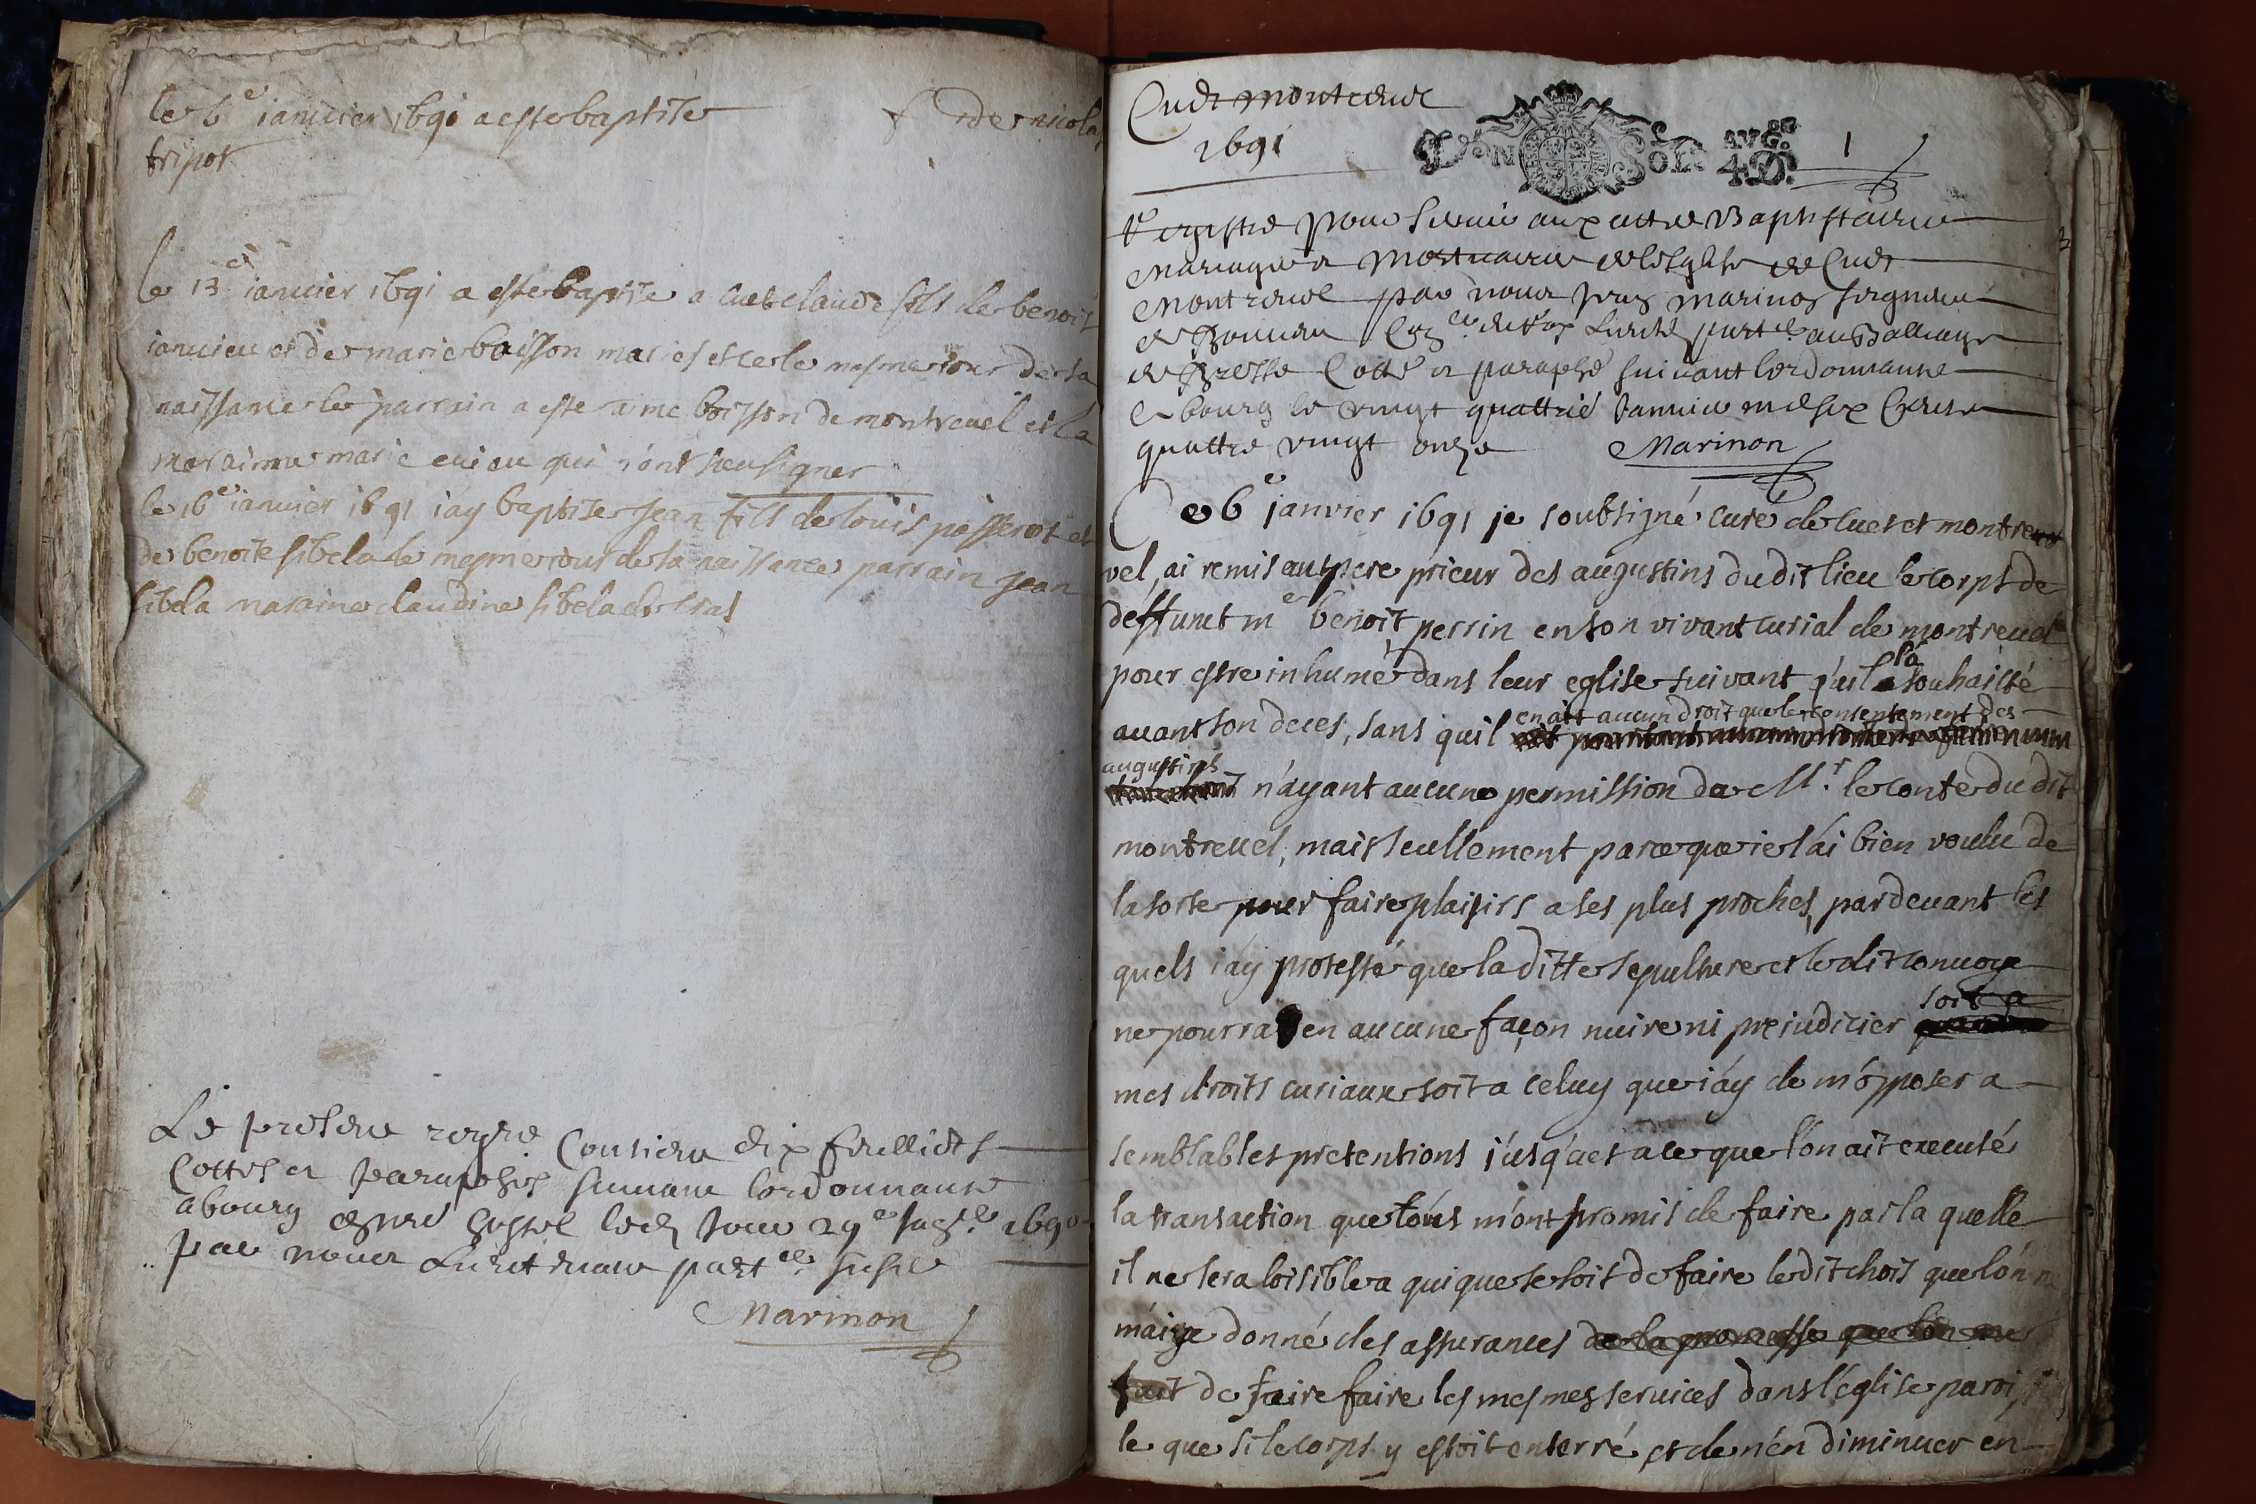 le 6e ianuier 1691 a este baptise
f de nicolas
tripot
le 13e ianuier 1691 a este baptise a cuet claude fils de benoist
ianuieu et de marie boisson mariés et ce le mesme iour de sa
naissance le parrain a este aime boisson de montreuel et la
maraine marie euieu qui n'ont sceu signer
le 16e ianuier 1691 i'ay baptise Jean fils de louis passerot et
de benoite sibela le mesme iour de la naissance parrain Jean
sibela maraine claudine sibela de tras
Le present regre Contient dix feulliets
Cottes et paraphés suiuant lordonnance
a bourg 29e 1690
par nous Lieutenant partel
Marinon
Cuet montreuel
1691
GEN SOLS AVG.on 4 D. 1
Registre pour seruir aux actes Baptistaires
Mariages et Mortuaires de lesglise de Cuet
Montreuel par nous Marinon seigneur
de au Balliage
de Bresse Cotté et paraphé suiuant lordonnance
a bourg le vingt quattrie Januier mil six Cents
quattre vingt onze Marinon
Ce 6e janvier 1691 je soubsigné curé de cuet et montre
vel, ai remis au pere prieur des augustins du dit lieu le corps de
deffunct me benoit perrin en son vivant curial de montreuel
pour estre inhumé dans leur eglise suivant qu'il l'a souhaitté
auant son deces, sans qu'il en ait aucun droit que le consentement des
augustins n'ayant aucune permission de Mr. le conte du dit
montreuel, mais seullement parce que ie l'ai bien voulu de
la sorte pour faire plaisirs a ses plus proches, pardeuant les
quels i'ay protesté que la ditte sepulture et le dit conuoye
ne pourra en aucune façon nuire ni prejudicier soit a
mes droits curiaux soit a celuy que i'ay de m'opposer a
semblables pretentions j'usq'ues a ce que l'on ait executé
la transaction que tous m'ont promis de faire par la quelle
il ne sera loisible a qui que se soit de faire le dit chois que l'on ne
m'aige donné des assurances de la promesse que l'on me
fait de faire faire les mesmes seruices dans l'eglise paroi
le que si le corps y estoit enterré et de n'en diminuer en